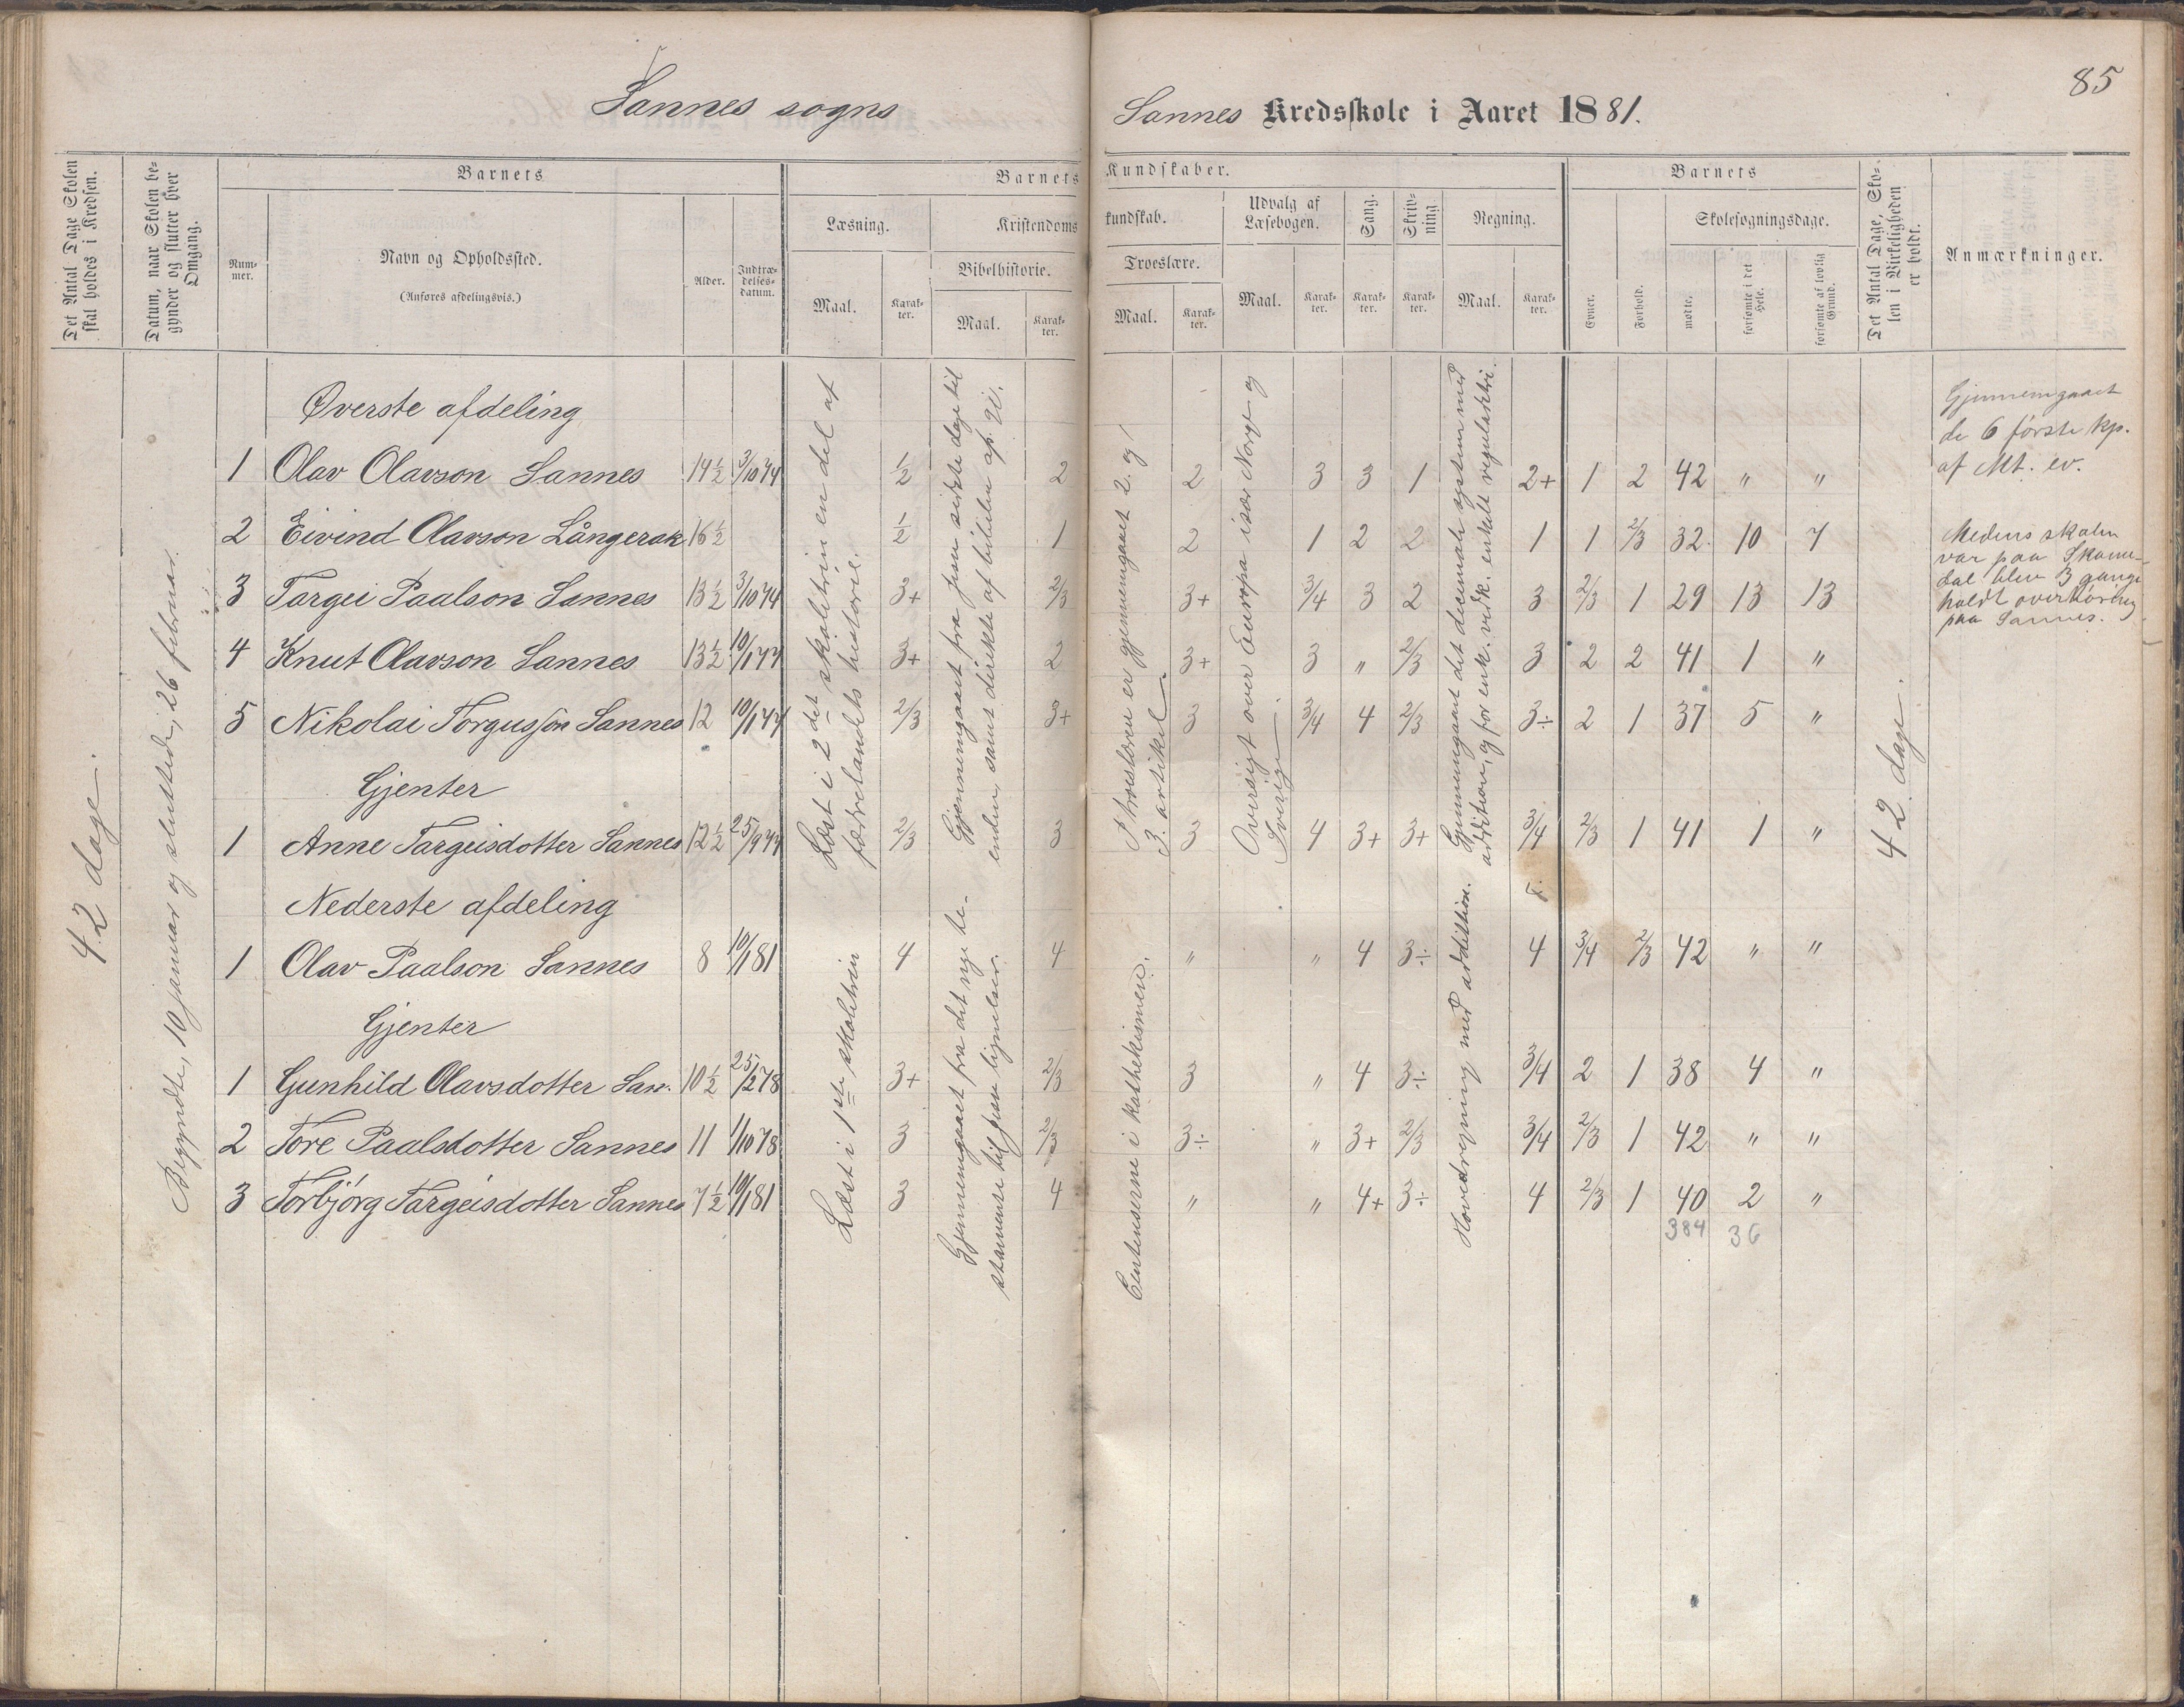 85
Sannes sogns
Sannes Kredsskole i Aaret 1881.
Det Antal Dage Skolen skal holdes i Kredsen.
Datum, naar Skolen begynder og slutter hver Omgang.
Barnets
Nummer.
Navn og Opholdssted.
(Anføres afdelingsvis.)
Alder.
Indtrædelsesdatum.
Barnets Kundskaber.
Læsning.
Maal.
Karakter.
Kristendomskundskab.
Bibelhistorie.
Maal.
Karakter.
Troeslære.
Maal.
Karakter.
Udvalg af Læsebogen.
Maal.
Karakter.
Sang.
Karakter.
Skrivning.
Karakter.
Regning.
Maal.
Karakter.
Barnets
Evner.
Forhold.
Skolesøgningsdage.
mødte.
forsømte i det Hele.
forsømte af lovlig Grund.
Det Antal Dage, Skolen i Virkeligheden er holdt.
Anmærkninger.
42 dage.
Begyndte, 10 januar og sluttede, 26 februar.
Øverste afdeling
1 Olav Olavson Sannes 14½ 3/10 74 ½ 2 2 3 3 1 2+ 1 2 42 " "
2 Eivind Olavson Långerak 16½ ½ 1 2 1 2 2 1 1 2/3 32 10 7
3 Targei Paalson Sannes 13½ 3/10 74 3+ 2/3 3+ 3/4 3 2 3 2/3 1 29 13 13
4 Knut Olavson Sannes 13½ 10/1 77 3+ 2 3+ 3 " 2/3 3 2 2 41 1 "
5 Nikolai Torgusson Sannes 12 10/1 77 2/3 3+ 3 3/4 4 2/3 3÷ 2 1 37 5 "
Gjenter
1 Anne Targeisdotter Sannes 12½ 25/9 77 2/3 3 3 4 3+ 3+ 3/4 2/3 1 41 1 "
Nederste afdeling
1 Olav Paalson Sannes 8 10/1 81 4 4 " " 4 3÷ 4 3/4 2/3 42 " "
Gjenter
1 Gunhild Olavsdotter San. 10½ 25/2 78 3+ 2/3 3 " 4 3÷ 3/4 2 1 38 4 "
2 Tore Paalsdotter Sannes 11 1/10 78 3 2/3 3÷ " 3+ 2/3 3/4 2/3 1 42 " "
3 Torbjörg Targeisdotter Sannes 7½ 10/1 81 3 4 " " 4+ 3÷ 4 2/3 1 40 2 "
384 36
Læst i 2det skoletrin en del af
fædrelandets historie.
Læst i 1ste skoletrin
Gjennemgaaet fra Jesu sidste dage til
enden, samt direkte af bibelen ap. Gj.
Gjennemgaaet fra det nye te-
stamente til Jesu lignelser.
I troeslæren er gjennemgaaet 2. og
3. artikel.
i kathekismen.
Oversigt over Europa især Norge og
Sverige.
Gjennemgaaet det decimale system med
addition, og for enk. vedk. enkelt reguladetri.
Hovedregning med addition.
42 dage.
Gjennemgaaet
de 6 første kp.
af Mt. ev.
Medens skolen
var paa Skome-
dal blev 3 gange
holdt overhøring
paa Sannes.